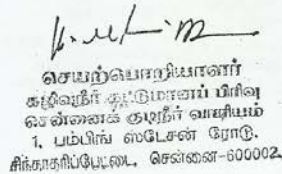 செயற்பொறியாளர்
கழிவுநீர் கட்டுமானப் பிரிவு
சென்னைக் குடிநீர் வாரியம்
1, பம்பிங் ஸ்டேசன் ரோடு.
சிந்தாதரிப்பேட்டை, சென்னை-600002